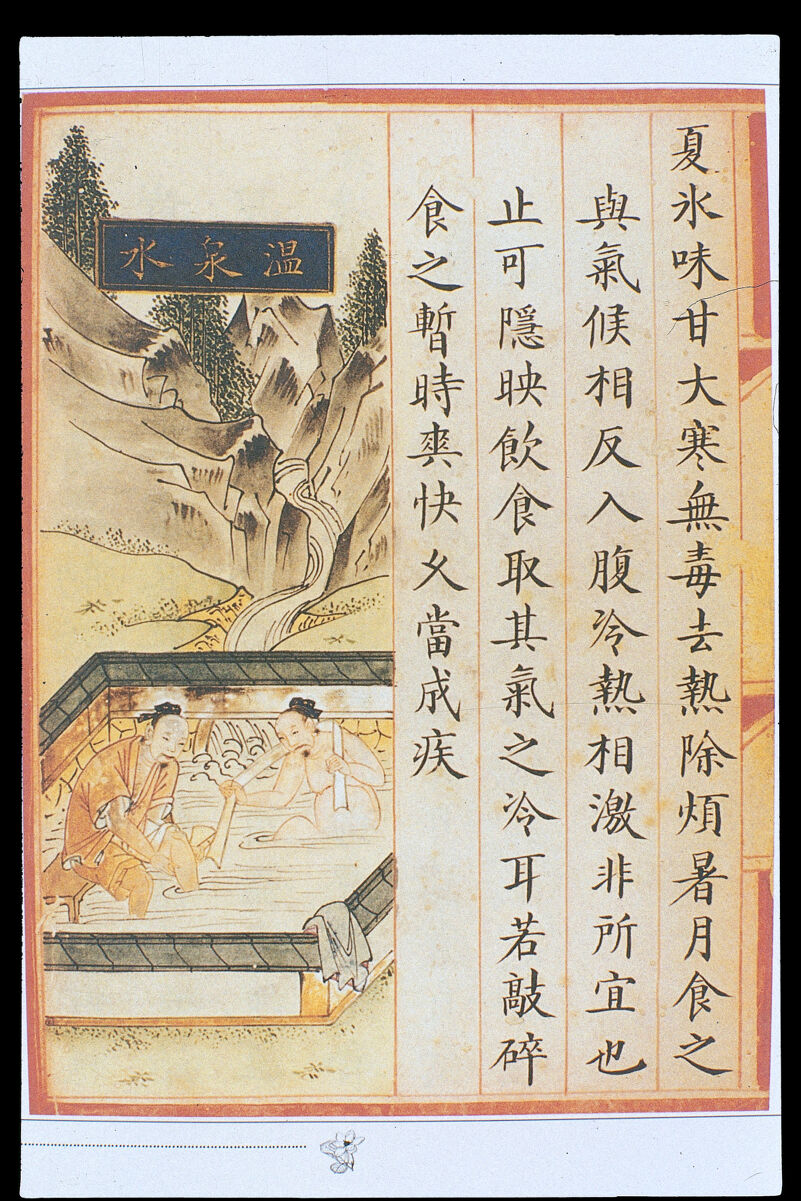 夏氷味甘大寒無毒去熱除煩暑月食之
與氣候相反入腹冷熱相激非所宜也
止可隱映飲食取其氣之冷耳若敲碎
食之暫時爽快乆當成疾
温泉水